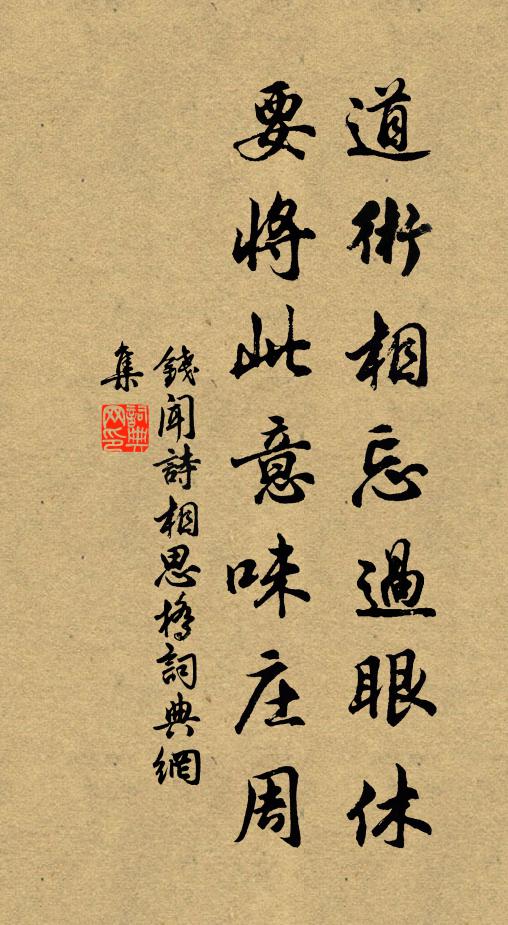 道術相忘過眼休
要將此意味庄周
錢聞詩相思橋詞典網
集
詞典网印